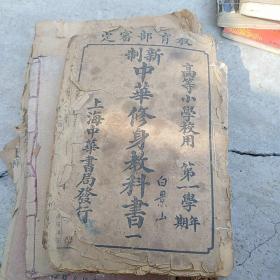 教育部審定
高等小學校用
第一學年
第一學期
新制
中華修身教科書一
白景山
上海中華書局發行